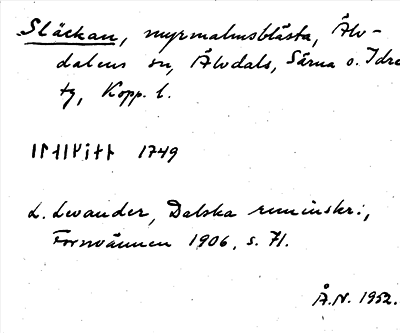 Släckan, myrmalmsblästa, Älv-
dalens sn, Älvdals, Särna o. Idre
tg, Kopp. l.
1749
L. Levander, Dalska runinskr.,
Fornvännen 1906, s. 71.
Å.N. 1952.